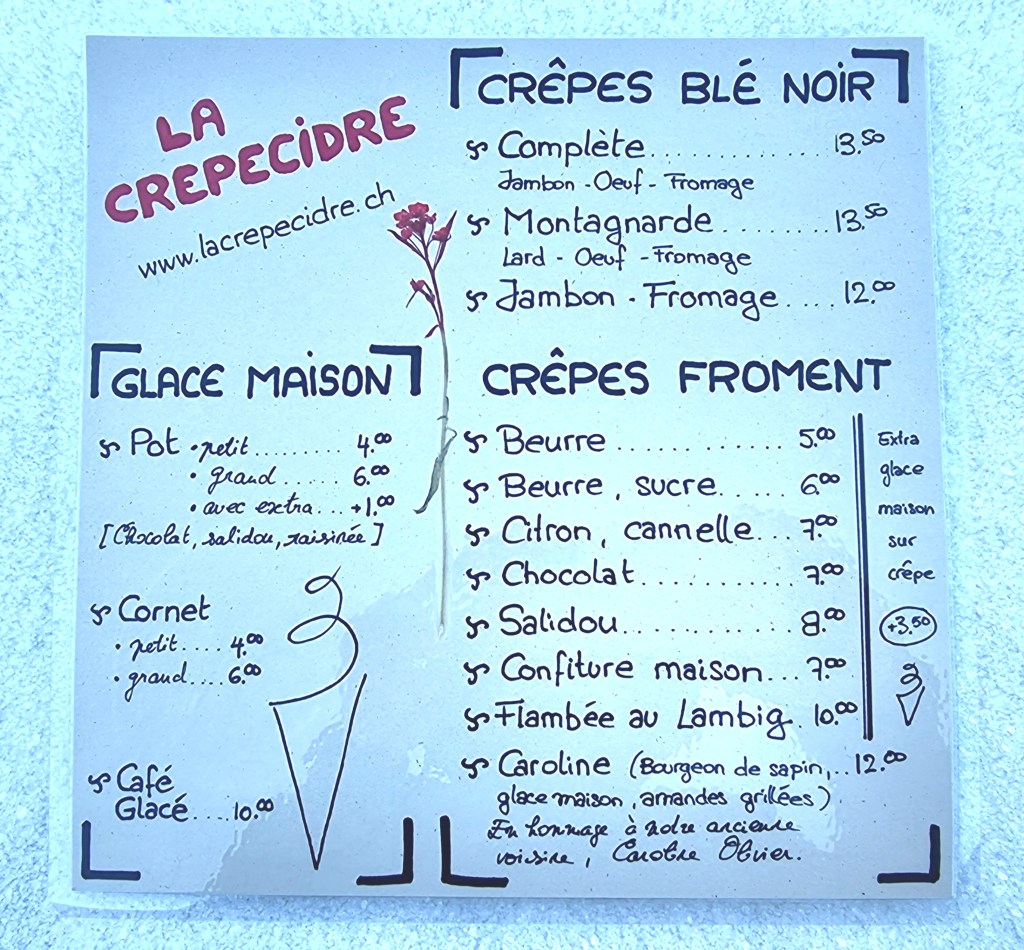 LA
CREPECIDRE
www.lacrepecidre.ch
CRÊPES BLÉ NOIR
Complète............. 13.50
Jambon - Oeuf - Fromage
Montagnarde........ 13.50
Lard - Oeuf - Fromage
Jambon - Fromage.... 12.00
GLACE MAISON
Pot • petit......... 4.00
• grand...... 6.00
• avec extra... +1.00
[Chocolat, salidou, raisinée]
Cornet
• petit.... 4.00
• grand.... 6.00
Café
Glacé.... 10.00
CRÊPES FROMENT
Beurre............ 5.00
Beurre, sucre..... 6.00
Citron, cannelle... 7.00
Chocolat........... 7.00
Salidou............ 8.00
Confiture maison... 7.00
Flambée au Lambig. 10.00
Caroline (Bourgeon de sapin,.. 12.00
glace maison, amandes grillées)
En hommage à notre ancienne
voisine, Caroline Olivier.
Extra
glace
maison
sur
crêpe
+3.50